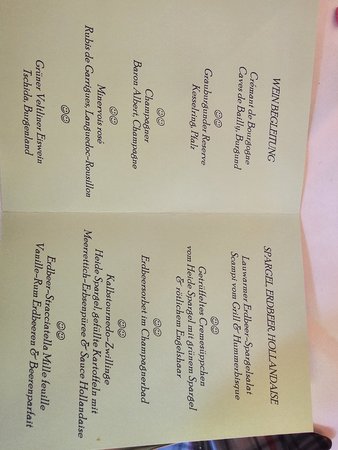 WEINBEGLEITUNG
Crémant de Bourgogne
Caves de Bailly, Burgund
Grauburgunder Reserve
Kesselring, Pfalz
Champagner
Baron Albert, Champagne
Minervois rosé
Rubis de Garrigues, Languedoc-Rousillon
Grüner Veltliner Eiswein
Tschida, Burgenland
SPARGEL ERDBEER HOLLANDAISE
Lauwarmer Erdbeer-Spargelsalat
Scampi vom Grill & Hummerbisque
Getrüffeltes Cremesüppchen
vom Heide Spargel mit grünem Spargel
& rötlichem Engelshaar
Erdbeersorbet im Champagnerbad
Kalbstournedo-Zwillinge
Heide Spargel, gefüllte Kartoffeln mit
Meerrettich-Erbsenpüree & Sauce Hollandaise
Erdbeer-Stracciatella Mille feuille
Vanille-Rum Erdbeeren & Beerenparfait